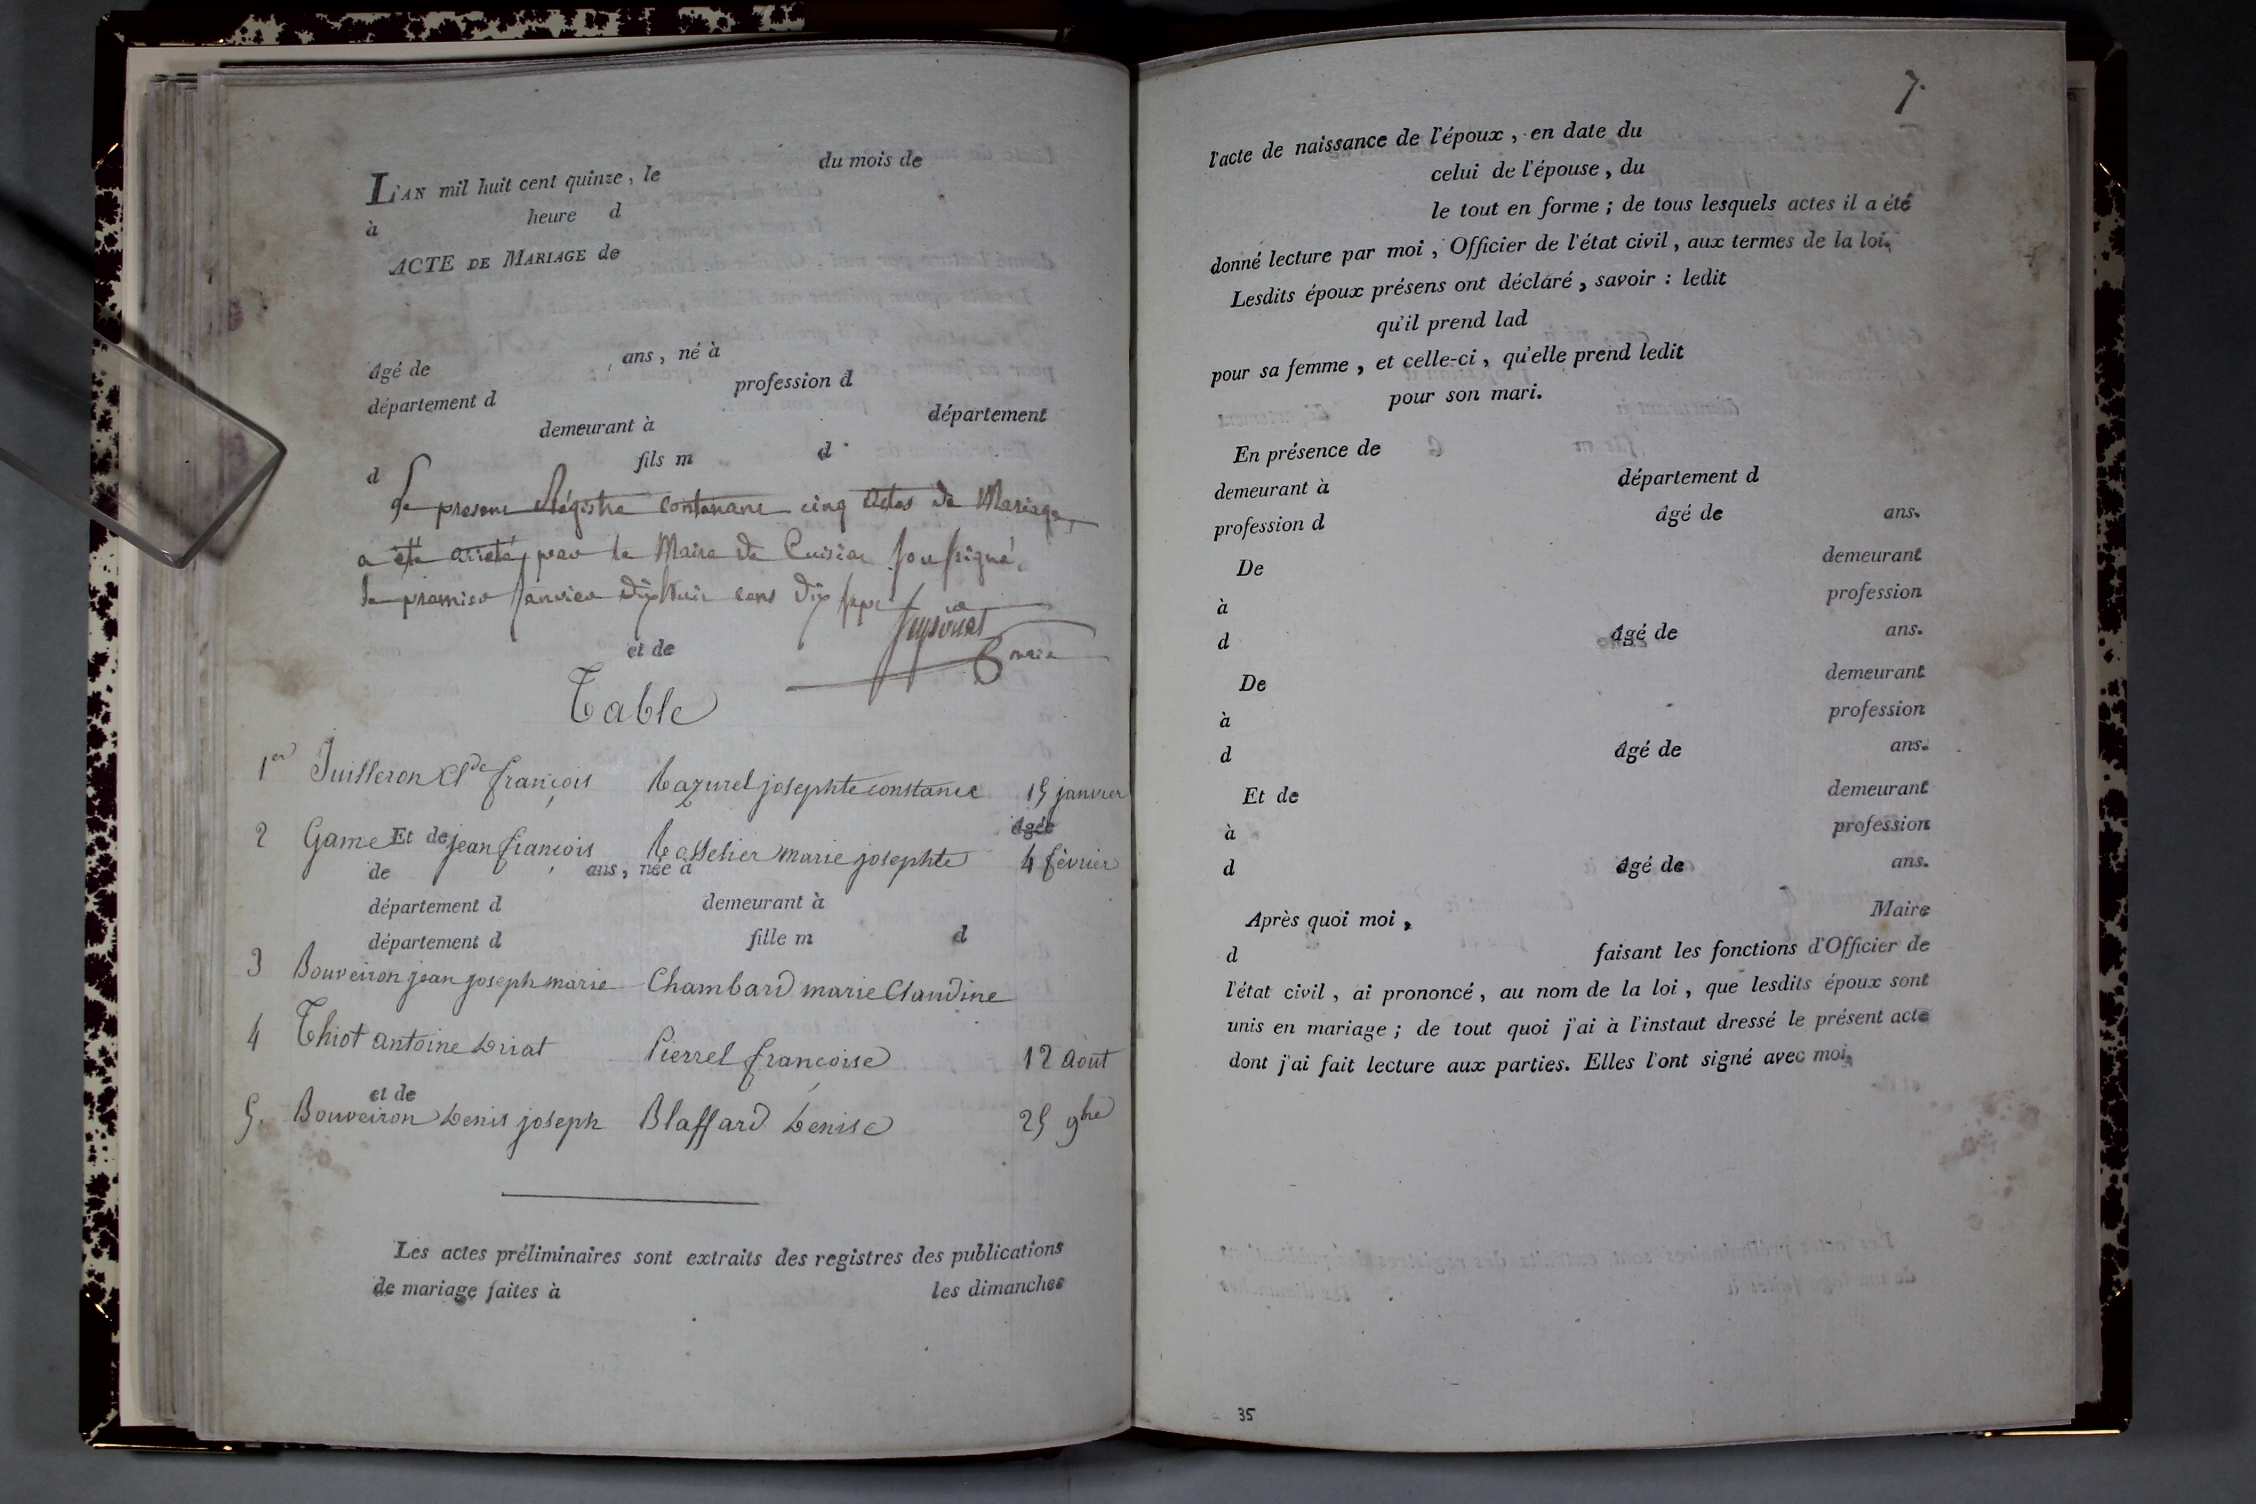 L'AN mil huit cent quinze, le du mois de
à heure d
ACTE DE MARIAGE de
âgé de ans, né à
département d profession d
demeurant à département
d fils m d
Le present Régistre contenant cinq actes de Mariage,
a été arreté par le Maire de Cuisia soussigné,
le premier Janvier dix huit cens dix sept
et de
Table
1er Juilleron Cl.de françois Mazurel josephte constance 15 janvier
âgée
2 Game Et de jean françois marie josephte 4 février
de ans, née à
département d demeurant à
département d fille m d
3 Bouveiron jean joseph marie Chambard marie Claudine
4 Thiot antoine Pierrel francoise 12 Août
et de
5. Bouveiron Denis joseph Blaffard Denise 25 9bre
Les actes préliminaires sont extraits des registres des publications
de mariage faites à les dimanches
7.
l'acte de naissance de l'époux, en date du
celui de l'épouse, du
le tout en forme; de tous lesquels actes il a été
donné lecture par moi, Officier de l'état civil, aux termes de la loi.
Lesdits époux présens ont déclaré, savoir : ledit
qu'il prend lad
pour sa femme, et celle-ci, qu'elle prend ledit
pour son mari.
En présence de
demeurant à département d
profession d âgé de ans.
De demeurant
à profession
d âgé de ans.
De demeurant
à profession
d âgé de ans.
Et de demeurant
à profession
d âgé de ans.
Après quoi moi, Maire
d faisant les fonctions d'Officier de
l'état civil, ai prononcé, au nom de la loi, que lesdits époux sont
unis en mariage; de tout quoi j'ai à l'instaut dressé le présent acte
dont j'ai fait lecture aux parties. Elles l'ont signé avec moi.
35